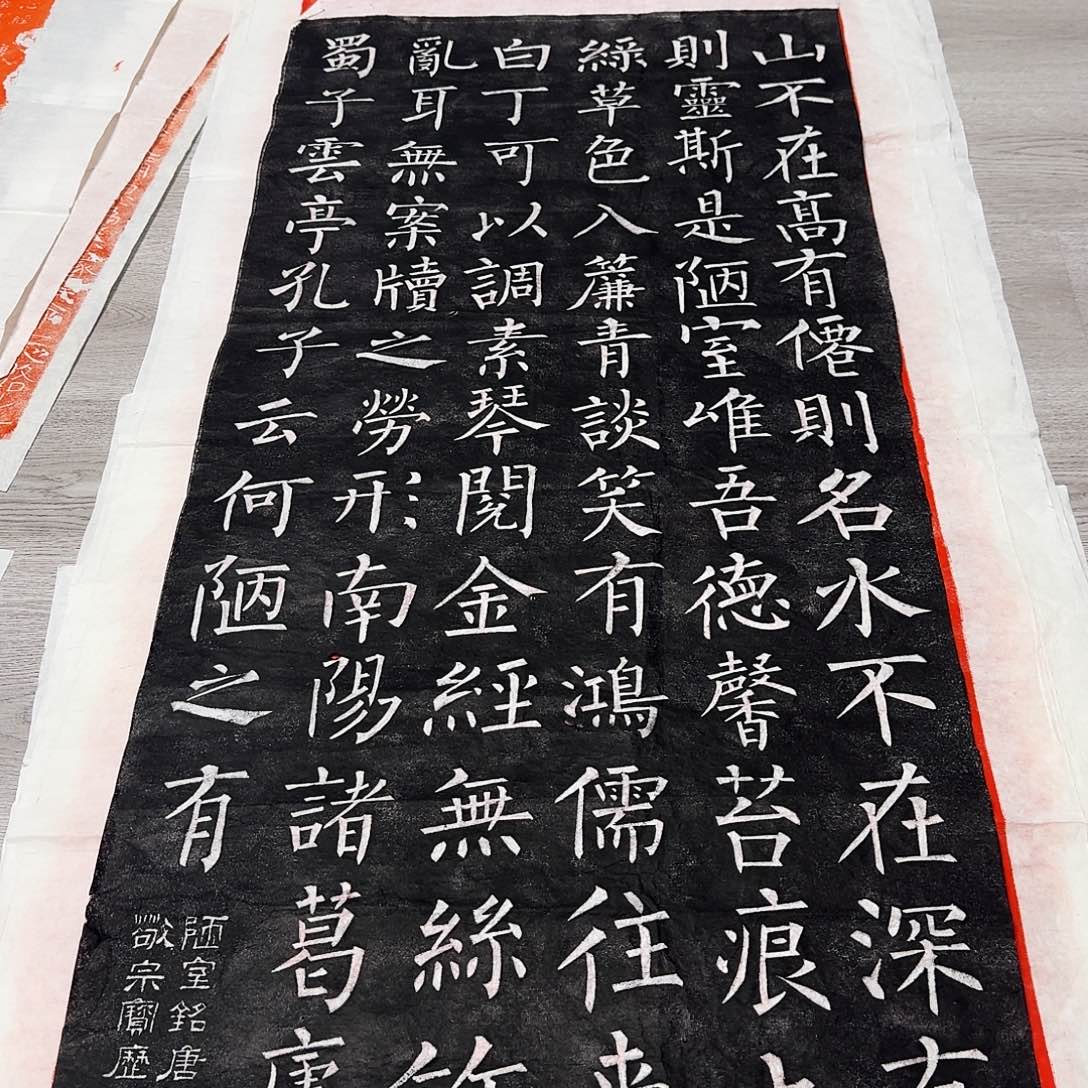 山不在高有僊則名水不在深有
則靈斯是陋室唯吾德馨苔痕上
綠草色入簾青談笑有鴻儒往來
白丁可以調素琴閱金經無絲竹
亂耳無案牘之勞形南陽諸葛廬
蜀子雲亭孔子云何陋之有
陋室銘唐
敬宗寶歷